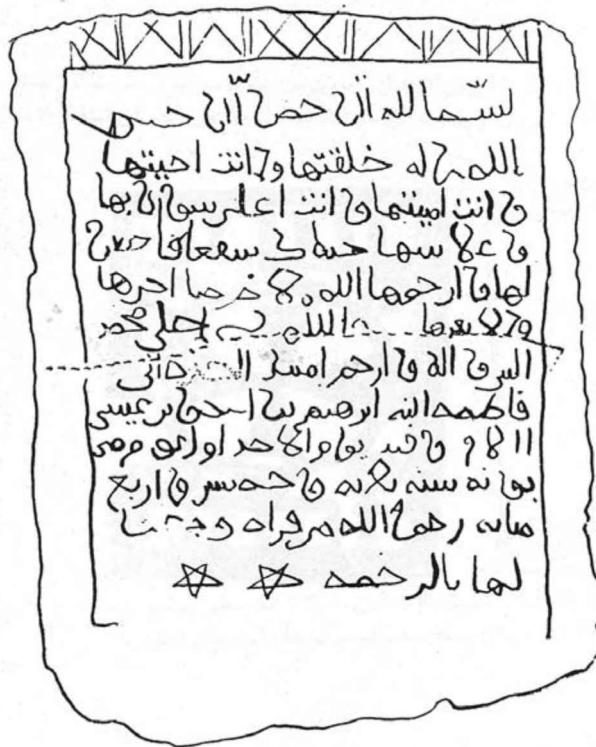 بسم الله الرحمن الرحيم
اللهم خلقتها وانت احيتها
وانت اميتها وانت اعلم
وعلانيتها شفعا
لها وارحمها اللهم لا تحرمنا اجرها
ولا بعدها اللهم صلى على محمد
النبي واله وارحم امتك
فاطمه ابنه ابرهيم بن اسحق بن عيسى
يوم الاحد اول يوم من
سنه ثلثه وخمسين واربع
مايه رحم الله من قراه ودعا
لها بالرحمه